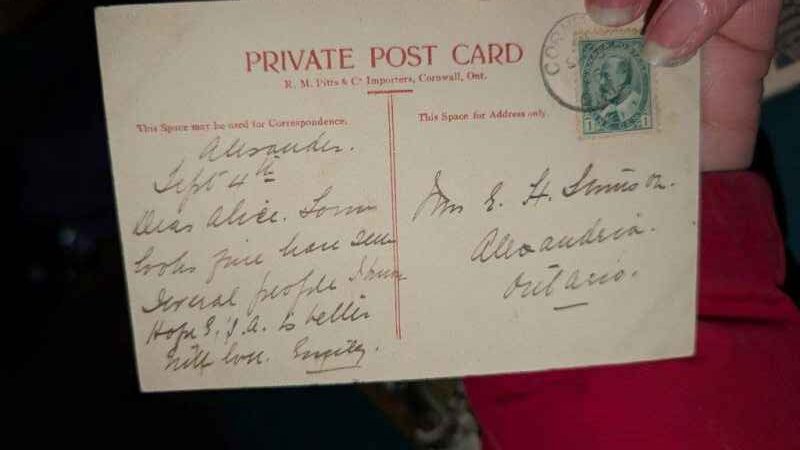 PRIVATE POST CARD
R. M. Pitts & Co Importers, Cornwall, Ont.
This Space may be used for Correspondence.
This Space for Address only.
CORN
1 1
Alexander.
Sept 4th
Dear Alice.
looks fine have seen
several people I know
Hope E. & A. is better
With love. Emily.
Mrs E. H. Stimson.
Alexandria.
Ontario.